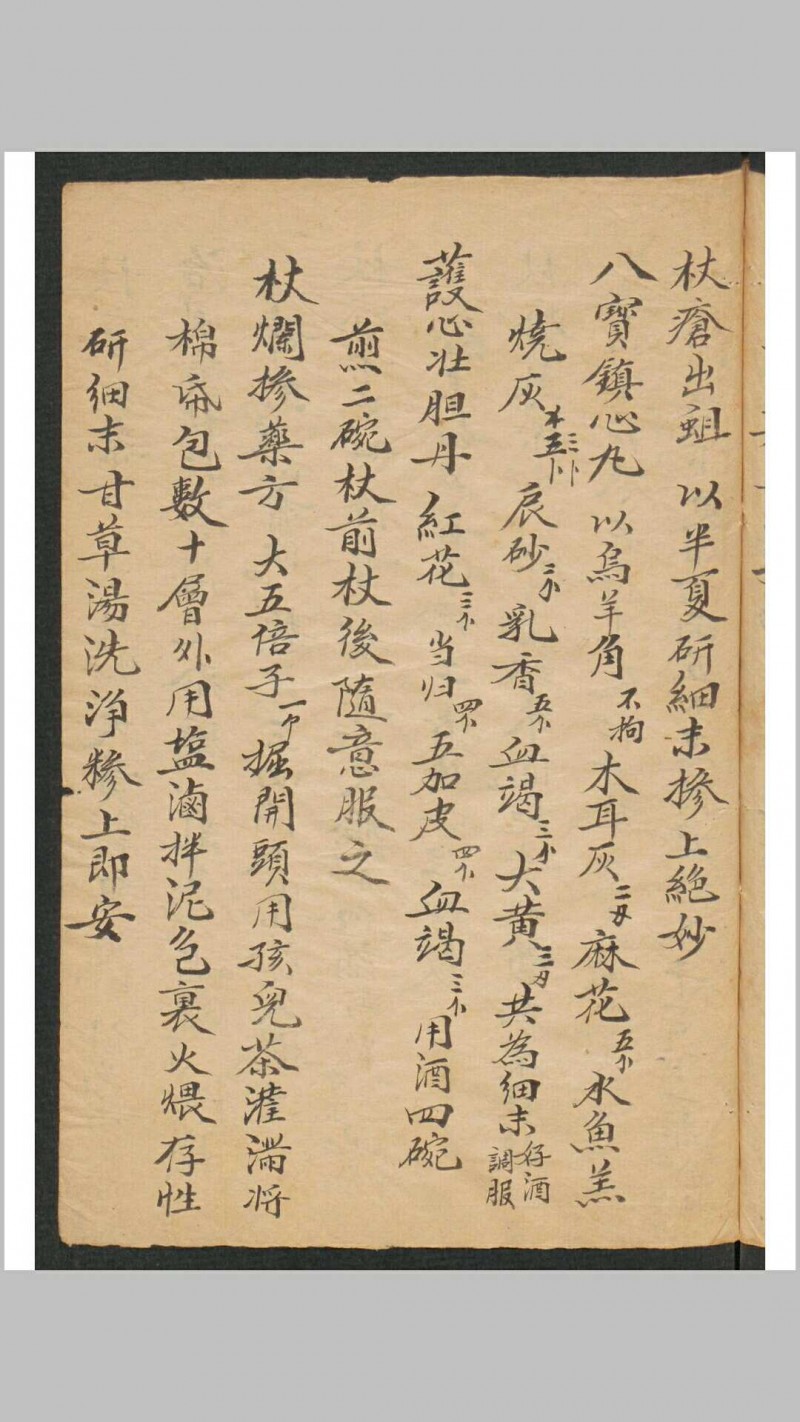 杖瘡出蛆 以半夏研細末掺上絕妙
八寶鎮心丸 以烏羊角不拘 木耳灰二刄 麻花五个 水魚羔
燒灰 辰砂三个 乳香五个 血竭三个 大黄三刄 共為細末 好酒調服
護心壮胆丹 紅花三个 当归四个 五加皮四个 血竭三个 用酒四碗
煎二碗杖前杖後隨意服之
杖爛掺藥方 大五倍子一个 掘開頭用孩兒茶灌滿将
棉帋包數十層外用塩滷拌泥包裏火煨存性
研细末甘草湯洗淨糝上即安